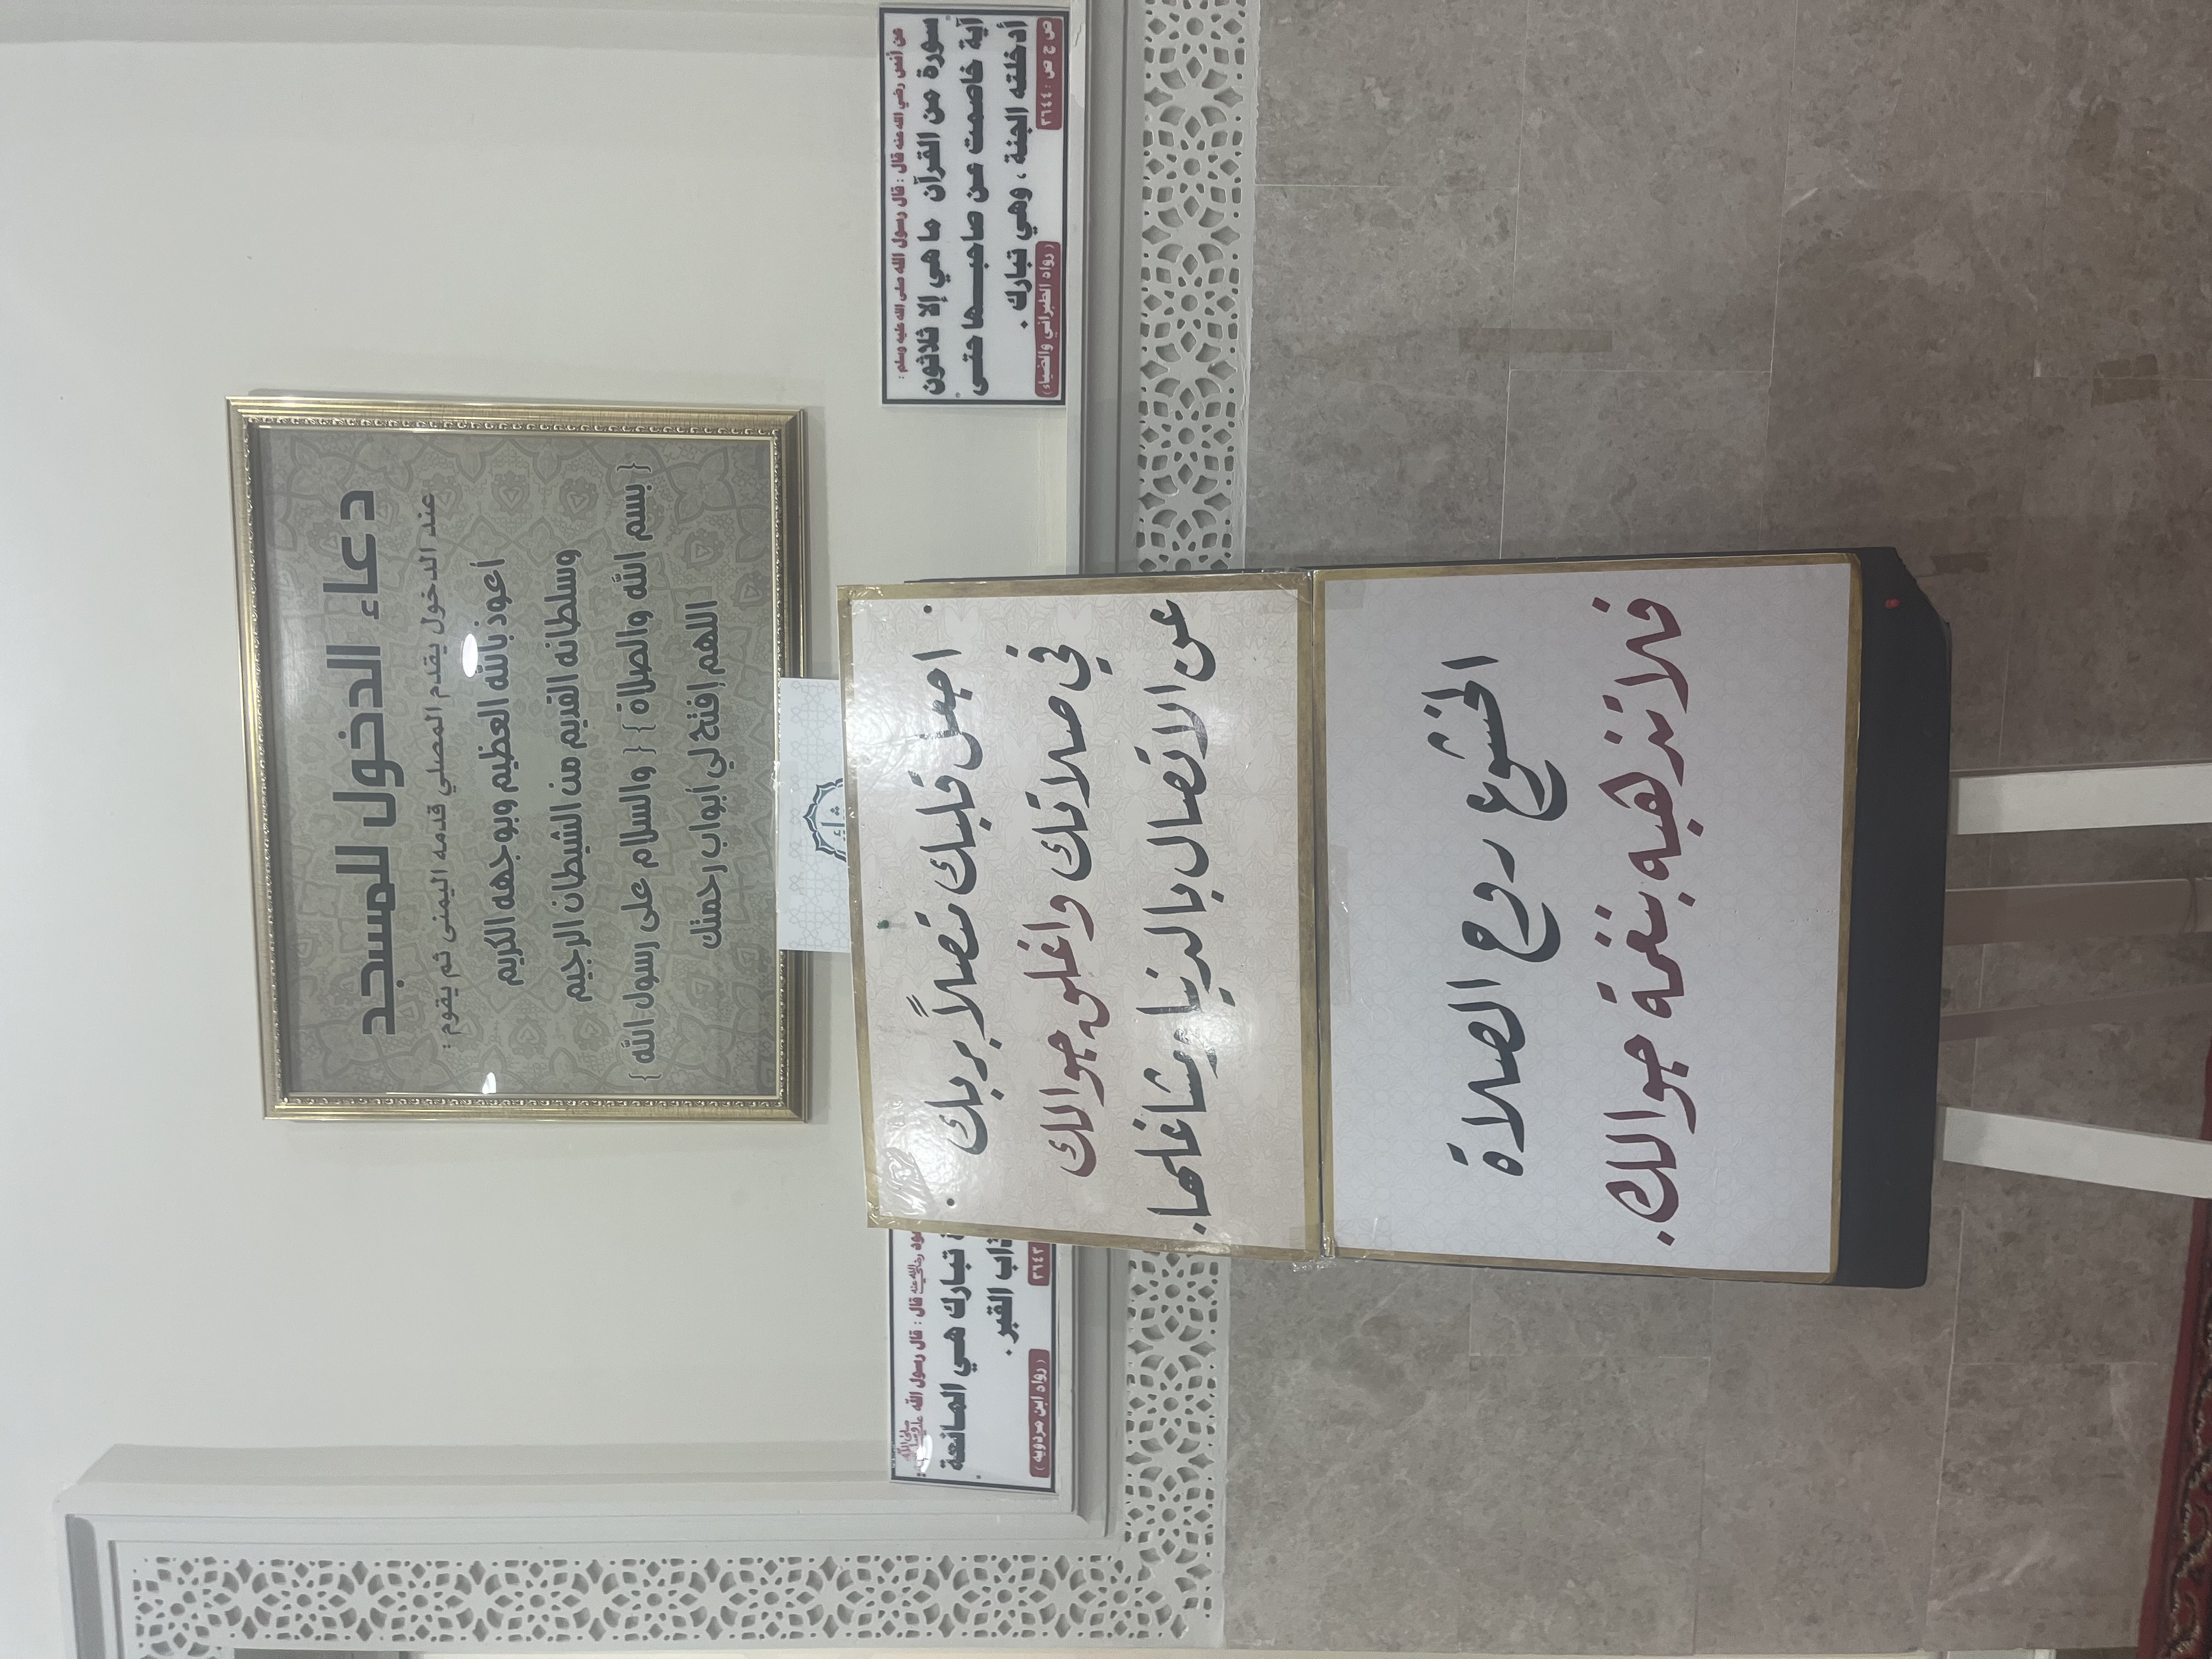 دعاء الدخول للمسجد
عند الدخول يقدم المصلي قدمه اليمنى ثم يقوم:
أعوذ بالله العظيم وبوجهه الكريم
وسلطانه القديم من الشيطان الرجيم
{ بسم الله والصلاة } { والسلام على رسول الله }
اللهم إفتح لي أبواب رحمتك
عن أنس رضي الله عنه قال : قال رسول الله صلى الله عليه وسلم :
سورة من القرآن ما هي إلا ثلاثون
آية خاصمت عن صاحبها حتى
أدخلته الجنة ، وهي تبارك .
ص ج ص : ٣٦٤٤
( رواه الطبراني والضياء )
قال : قال رسول الله صلى الله عليه وسلم :
تبارك هي المانعة
القبر .
٣٦٤٣
( رواه ابن مردويه )
اجعل قلبك متصلاً بربك
في صلاتك واغلق جوالك
عن الاتصال بالدنيا ومشاغلها.
الخشوع روح الصلاة
فلا تذهبه بنغمة جوالك.